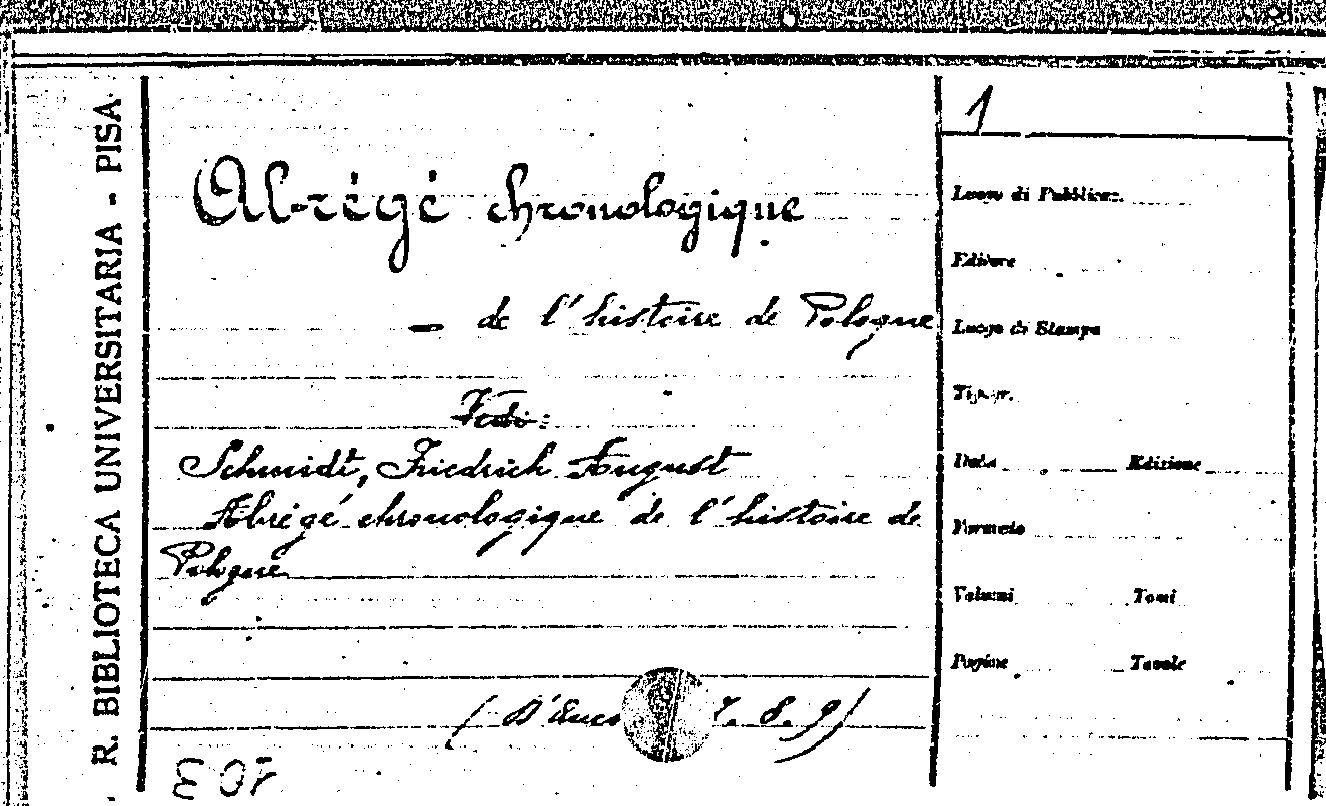 R. BIBLIOTECA UNIVERSITARIA - PISA
1
Abrégé chronologique
— de l'histoire de Pologne
Vedi:
Schmidt, Friedrich August
Abrégé chronologique de l'histoire de
Pologne
7. 8. 9)
Luogo di Pubblicaz.
Editore
Luogo di Stampa
Tipogr.
Data Edizione
Formato
Volumi Tomi
Pagine Tavole